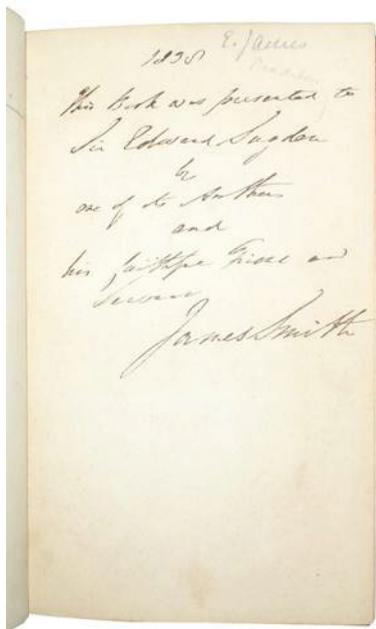 1838
E. James
This Book was presented to
Sir Edward Sugden
by
one of its Authors
and
his faithful Friend and
Servant
James Smith